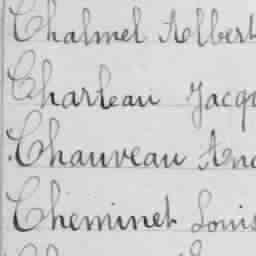 Chalmel Albert
Charleau Jacq
Chauveau An
Cheminet Louis